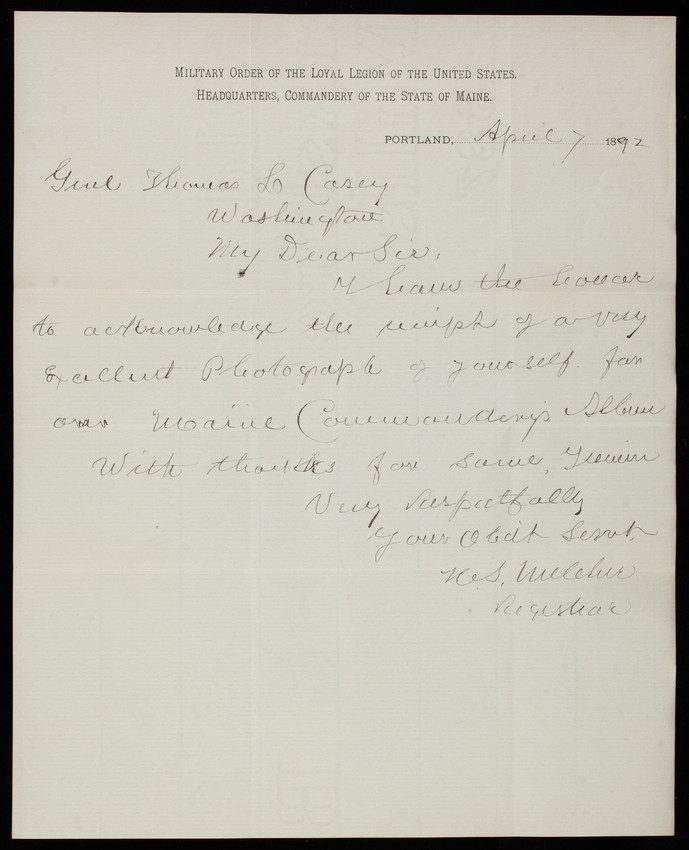 MILITARY ORDER OF THE LOYAL LEGION OF THE UNITED STATES.
HEADQUARTERS, COMMANDERY OF THE STATE OF MAINE.
PORTLAND, April 7 1892
Genl Thomas L Casey
Washington
My Dear Sir,
I have the honor
to acknowledge the receipt of a very
Excellent Photograph of yourself for
our Maine Commandery's Album
With thanks for same, I remain
Very Respectfully
Your Obdt Servt.
H.S. Melcher
Registrar